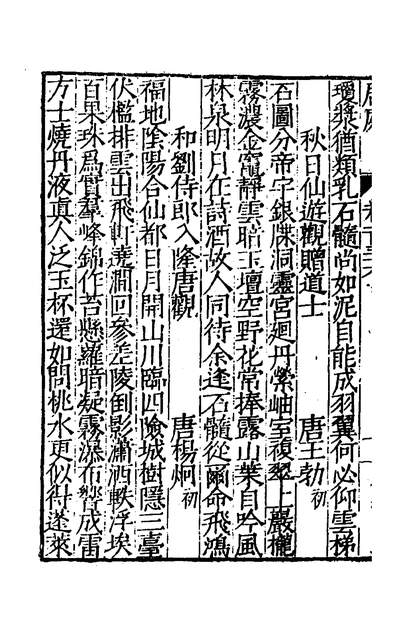 瓊漿猶類乳石髓尚如泥自能成羽翼何必仰雲梯
秋日仙遊觀贈道士 唐王勃初
石圖分帝字銀牒洞靈宮廻丹縈岫室複翠上巖櫳
霧濃金竈靜雲暗玉壇空野花常捧露山葉自吟風
林泉明月在詩酒故人同待余逢石髓從爾命飛鴻
和劉侍郎入隆唐觀 唐楊炯初
福地陰陽合仙都日月開山川臨四險城樹隱三臺
伏檻排雲出飛軒遶澗回參差陵倒影瀟洒軼浮埃
百果珠爲實羣峰錦作苔懸蘿暗凝霧瀑布響成雷
方士燒丹液真人泛玉杯還如問桃水更似得蓬萊